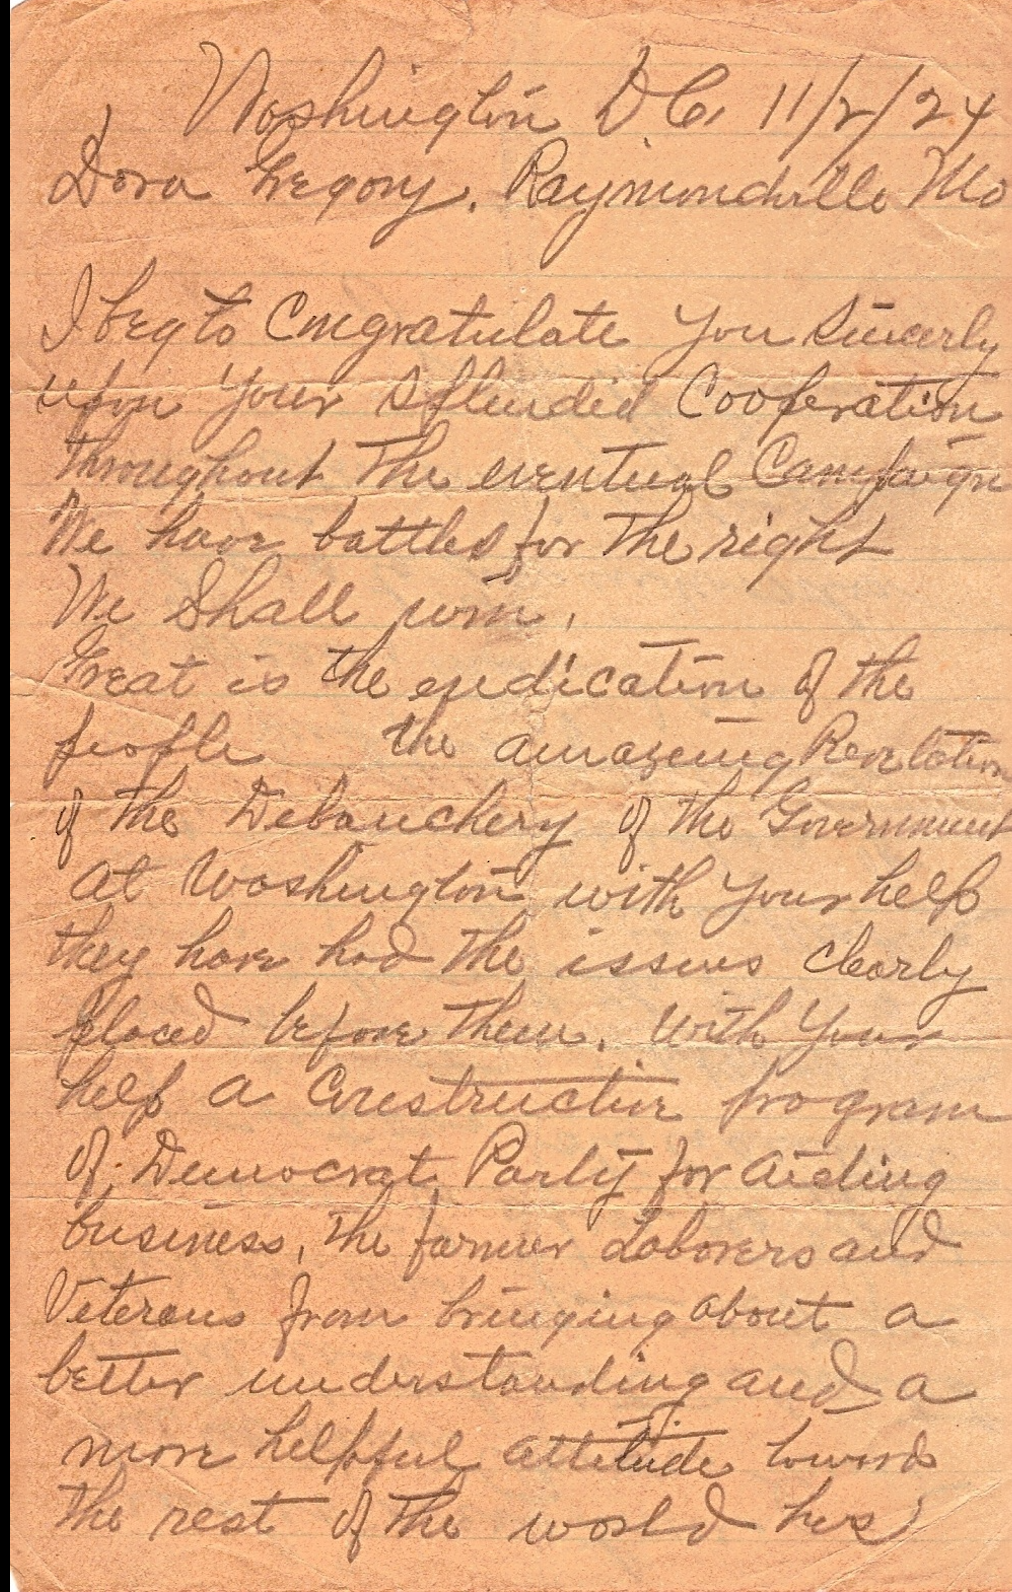 Washington D C. 11/2/24
Dora Gregory. Raymondville Mo
I beg to Congratulate you Sincerly
upon your Splendid Cooperation
throughout the eventual Campaign
We have battles for the right
We Shall win.
Great is the endication of the
people the amazeing Revelation
of the Debauchery of the Government
at Washington with your help
they have had the issues clearly
placed before them. With your
help a Constructive program
of Democrat Party for aiding
business, the farmer Laborers and
Veterans from bringing about a
better understanding and a
more helpful attitude toward
the rest of the world has